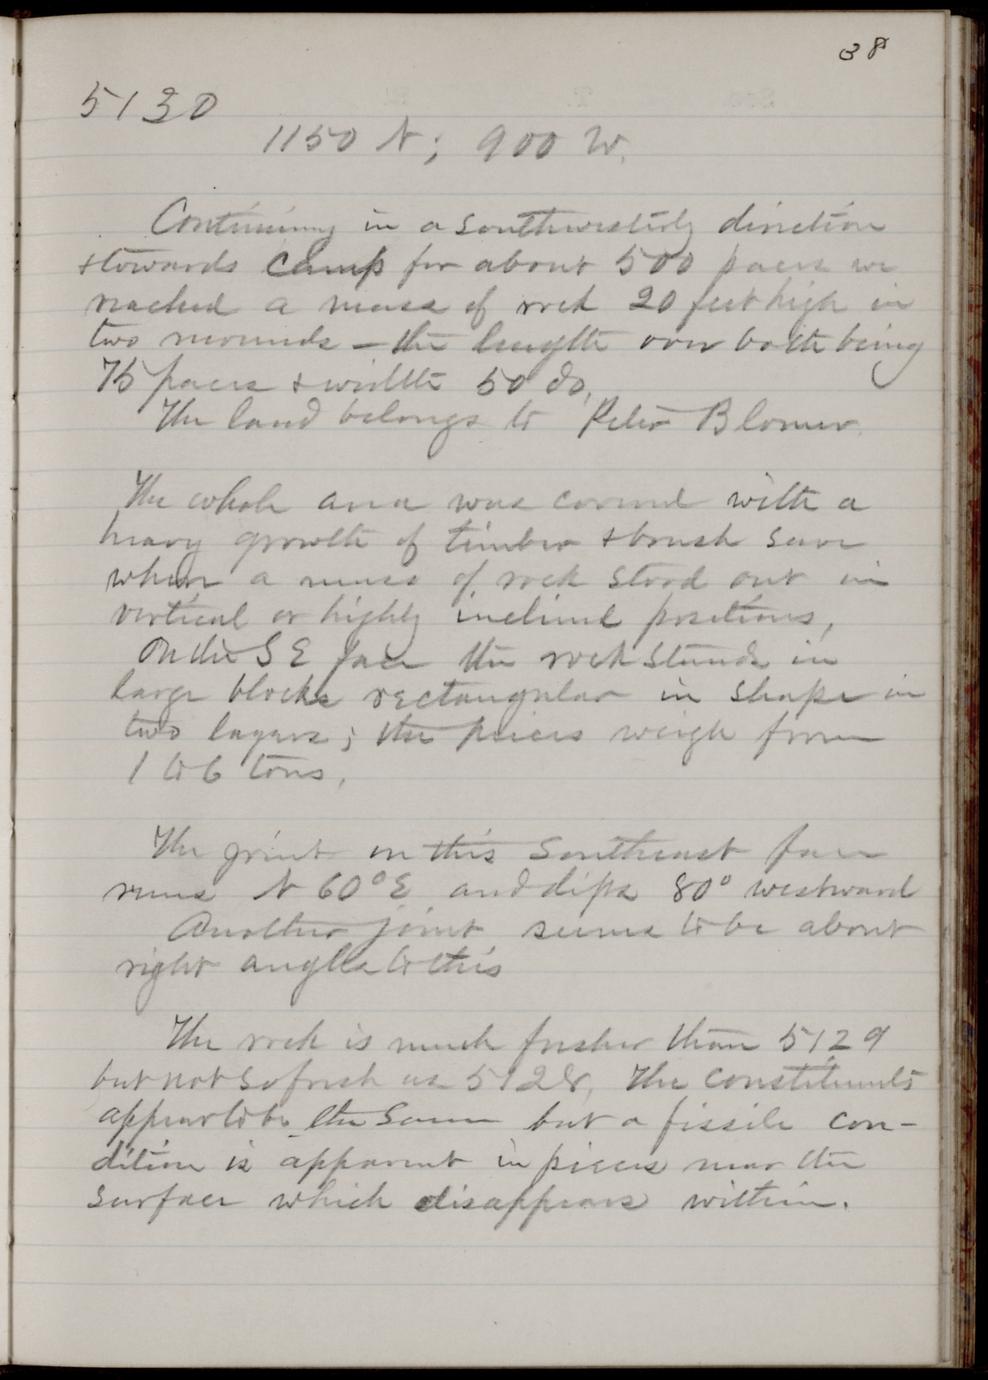 38
5130
1150 N; 900 W.
Continuing in a southwesterly direction
+ towards camp for about 500 paces we
reached a mass of rock 20 feet high in
two mounds - the length over both being
75 paces + width 50 do.
The land belongs to Peter Blomer.
The whole area was covered with a
heavy growth of timber + brush save
where a mass of rock stood out in
vertical or highly inclined positions,
On the S E face the rock stands in
large blocks rectangular in shape in
two layers; the pieces weigh from
1 to 6 tons.
The joint on this Southeast face
runs N 60° E and dips 80° westward
Another joint seems to be about
right angles to this
The rock is much fresher than 5129
but not so fresh as 5128, The constituents
appear to be the same but a fissile con-
dition is apparent in pieces near the
surface which disappears within.